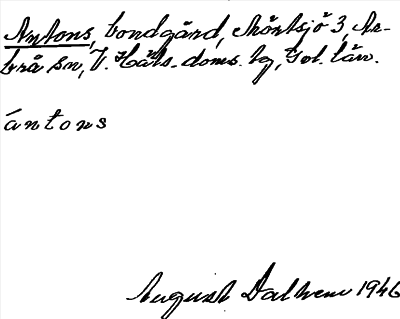 Antons, bondgård, Mörtsjö 3, Ar-
brå sn, V. Häls. doms. bg, Gvl. län.
ántons
August Dalhem 1946